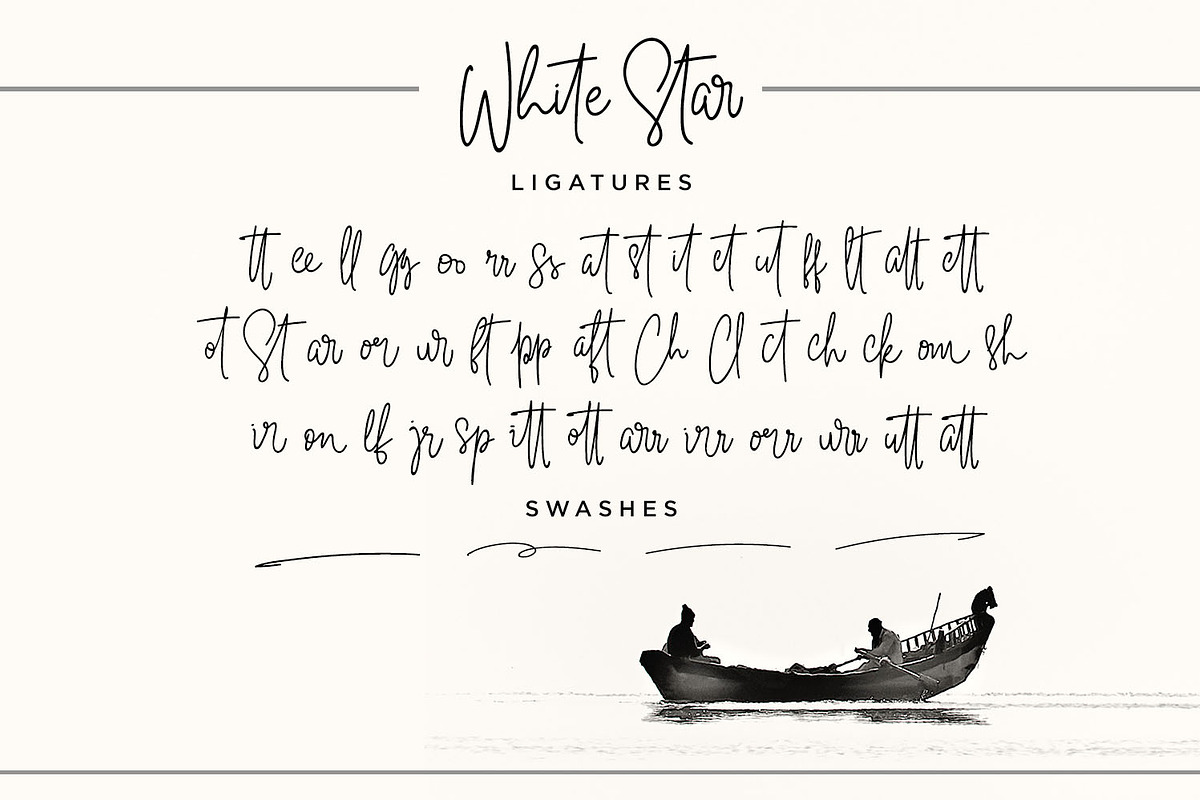 White Star
LIGATURES
tt ee ll gg oo rr ss at st it et ut ff lt alt ett
ot St ar or ur ft pp aft Ch Cl ct ch ck om sh
ir on lf jr sp itt ott arr irr orr urr utt att
SWASHES